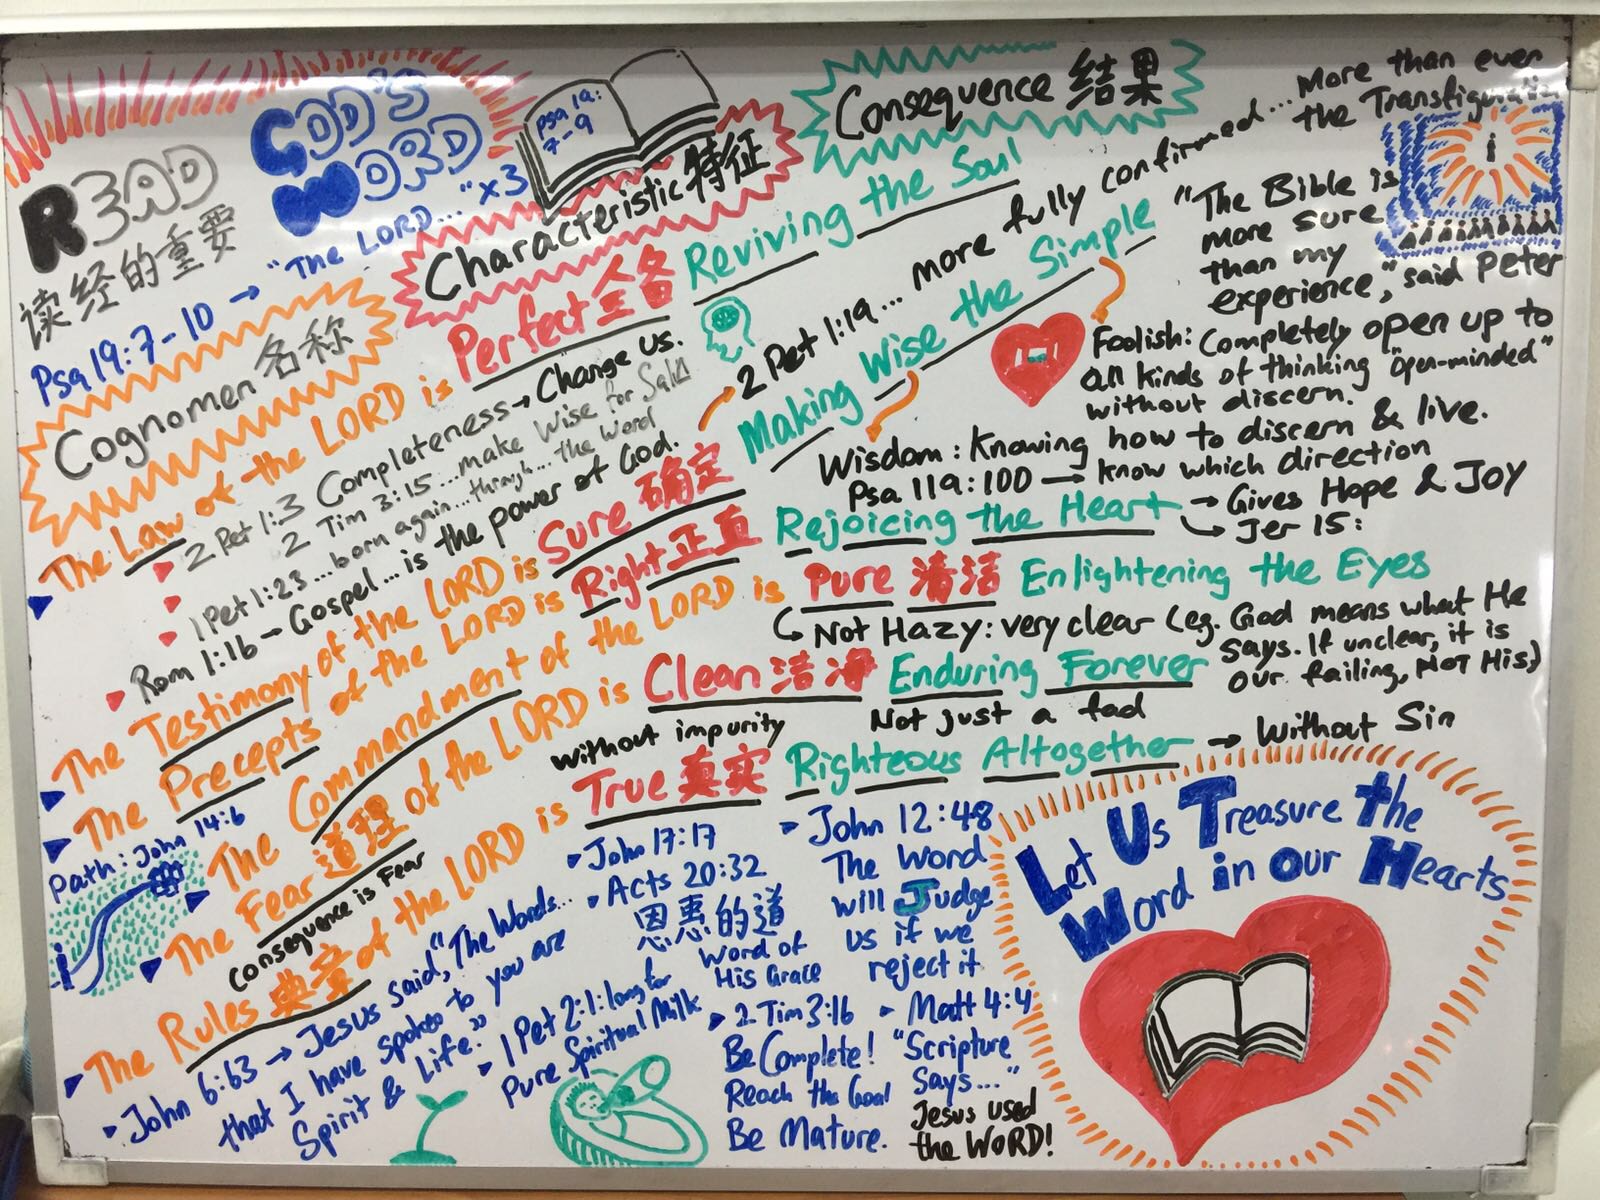 READ
GOD'S
WORD
读经的重要
Psa 19:7-10 → "The LORD... "x3
psa 19:
7-9
Cognomen 名称
Characteristic 特征
Consequence 结果
The Law of the LORD is Perfect 全备 Reviving the Soul
2 Pet 1:3 Completeness → Change us.
2 Tim 3:15... make wise for Sal
1 Pet 1:23... born again... through... the word
Rom 1:16 → Gospel... is the power of God.
The Testimony of the LORD is Sure 确定 Making Wise the Simple
2 Pet 1:19... more fully confirmed... More than even
the Transfiguration
"The Bible is
more sure
than my
experience," said Peter
Foolish: Completely open up to
all kinds of thinking "open-minded"
without discern.
Wisdom: Knowing how to discern & live.
Psa 119:100 → know which direction
The Precepts of the LORD is Right 正直 Rejoicing the Heart → Gives Hope & Joy
→ Jer 15:
The Commandment of the LORD is Pure 清洁 Enlightening the Eyes
Not Hazy: very clear (eg. God means what He
says. If unclear, it is
our failing, NOT His)
The Fear 道理 of the LORD is Clean 洁净 Enduring Forever
consequence is Fear
without impurity
Not just a fad
The Rules 典章 of the LORD is True 真实 Righteous Altogether → Without Sin
Path: John 14:6
John 6:63 → Jesus said, "The Words...
that I have spoken to you are
Spirit & Life."
John 17:17
Acts 20:32
恩惠的道
Word of
His Grace
1 Pet 2:1: long for
Pure Spiritual Milk
John 12:48
The Word
will Judge
us if we
reject it
2 Tim 3:16
Be Complete!
Reach the Goal
Be Mature.
Matt 4:4
"Scripture
says...."
Jesus used
the WORD!
Let Us Treasure the
Word in our Hearts